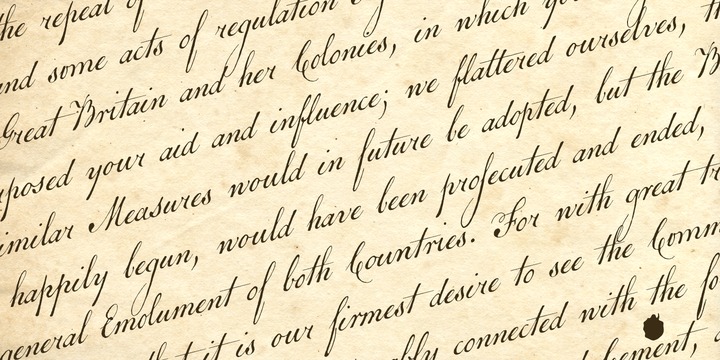 the repeal of
and some acts of regulation
Great Britain and her Colonies, in which
posed your aid and influence; we flattered ourselves,
imilar Measures would in future be adopted, but the
happily begun, would have been proſecuted and ended,
general Emolument of both Countries. For with great
that it is our firmest desire to see the
connected with the